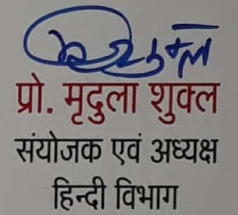 प्रो. मृदुला शुक्ल
संयोजक एवं अध्यक्ष
हिन्दी विभाग